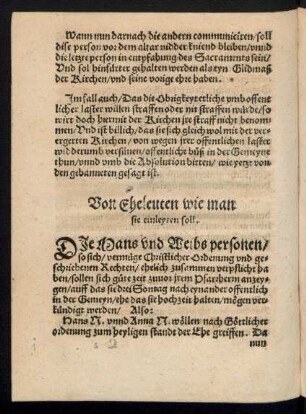 Wann nun darnach die andern communicirn / soll
dise person vor dem altar nidder kniend bleiben / vnnd
die letzte person in entpfahung des Sacraments sein /
Vnd sol hinfürter gehalten werden als eyn Glidmaß
der Kirchen / vnd seine vorige ehre haben.
Im fall auch / Das die Obrigkeyt etliche vmb offent
licher laster willen straffen oder nit straffen würde / so
wirt doch hiermit der Kirchen jre straff nicht benom-
men / Vnd ist billich / das sie sich gleich wol mit der ver-
ergerten Kirchen / von wegen jrer offentlichen laster
widerumb versünen / offentlich büß in der Gemeyne
thun / vnnd vmb die Absolution bitten / wie yetzt von
den gebanneten gesagt ist.
Von Eheleuten wie man
sie einleyten soll.
DIe Mans vnd Weibs personen /
so sich / vermüge Christlicher Ordenung vnd ge-
schribenen Rechten / ehelich zusammen verpflicht ha
ben / sollen sich gute zeit zuuor jrem Pfarrhern anzey-
gen / auff das sie drei Sontag nach eynander offentlich
in der Gemeyn / ehe das sie hochzeit halten / mögen ver-
kündigt werden / Also:
Hans N. vnnd Anna N. wöllen nach Göttlicher
ordenung zum heyligen standt der Ehe greiffen. Da
nun